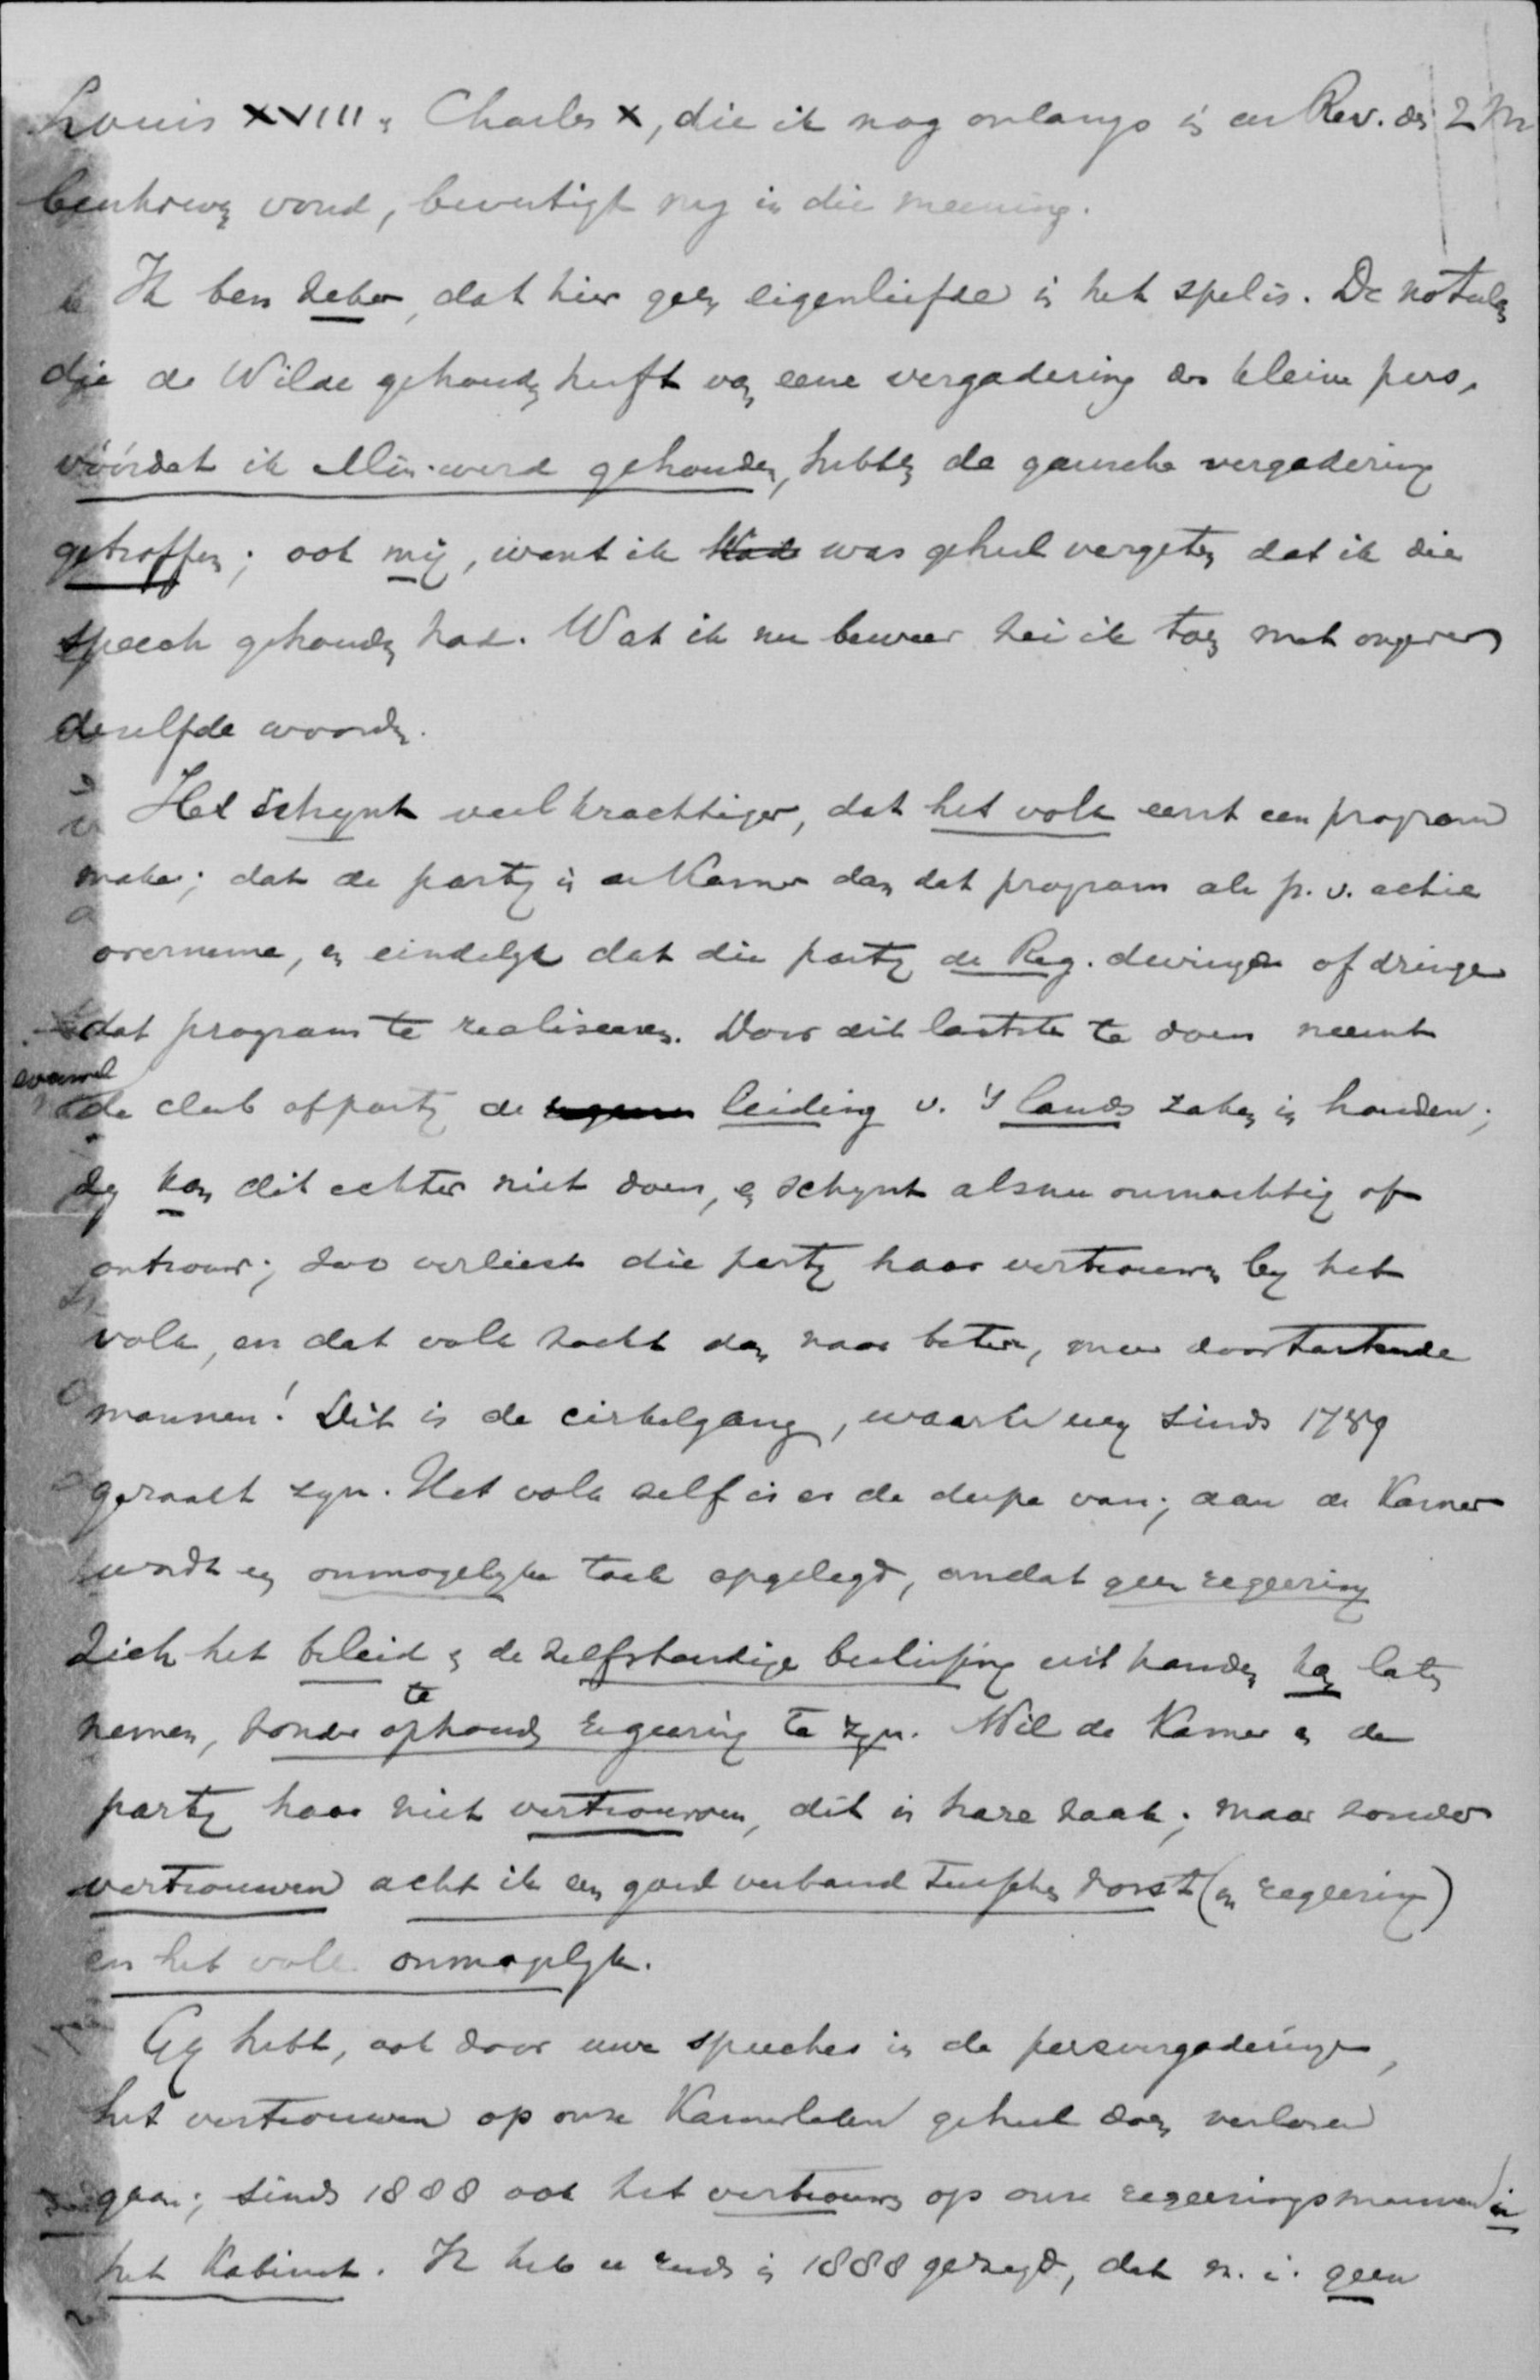 Louis XVIII & Charles X, die ik nog onlangs in de Rev. des 2 M
beschreven vond, bevestigt mij in die meening.
Ik ben zeker, dat hier geen eigenliefde in het spel is. De notulen
die de Wilde gehouden heeft van eene vergadering der kleine pers,
vóórdat ik Min. werd gehouden, hebben de gansche vergadering
getroffen; ook mij, want ik had was geheel vergeten dat ik die
speech gehouden had. Wat ik nu beweer zei ik toen met ongeveer
dezelfde woorden.
Het schijnt veel krachtiger, dat het volk eerst een program
make; dat de partij in de Kamer dan dat program als p. v. actie
overneme, en eindelijk dat die partij de Reg. dwinge of dringe
dat program te realiseeren. Door dit laatste te doen neemt
de club of partij de leiding v. 's lands zaken in handen;
zij kan dit echter niet doen, en schijnt alsnu onmachtig of
ontrouw; zoo verliest die partij haar vertrouwen bij het
volk, en dat volk zoekt dan naar betere, meer doortastende
mannen! Dit is de cirkelgang, waarin wij sinds 1789
geraakt zijn. Het volk zelf is er de dupe van; aan de Kamer
wordt een onmogelijke taak opgelegd, omdat geen regeering
zich het beleid & de zelfstandige beslissing uit handen kan laten
nemen, zonder op te houden regeering te zijn. Wil de Kamer en de
partij haar niet vertrouwen, dit is hare zaak; maar zonder
vertrouwen acht ik een goed verband tusschen vorst (en regeering)
en het volk onmogelijk.
Gij hebt, ook door uwe speeches in de persvergaderingen,
het vertrouwen op onze Kamerleden geheel doen verloren
gaan; sinds 1888 ook het vertrouwen op onze regeeringsmannen in
het Kabinet. Ik heb u reeds in 1888 gezegd, dat m. i. geen